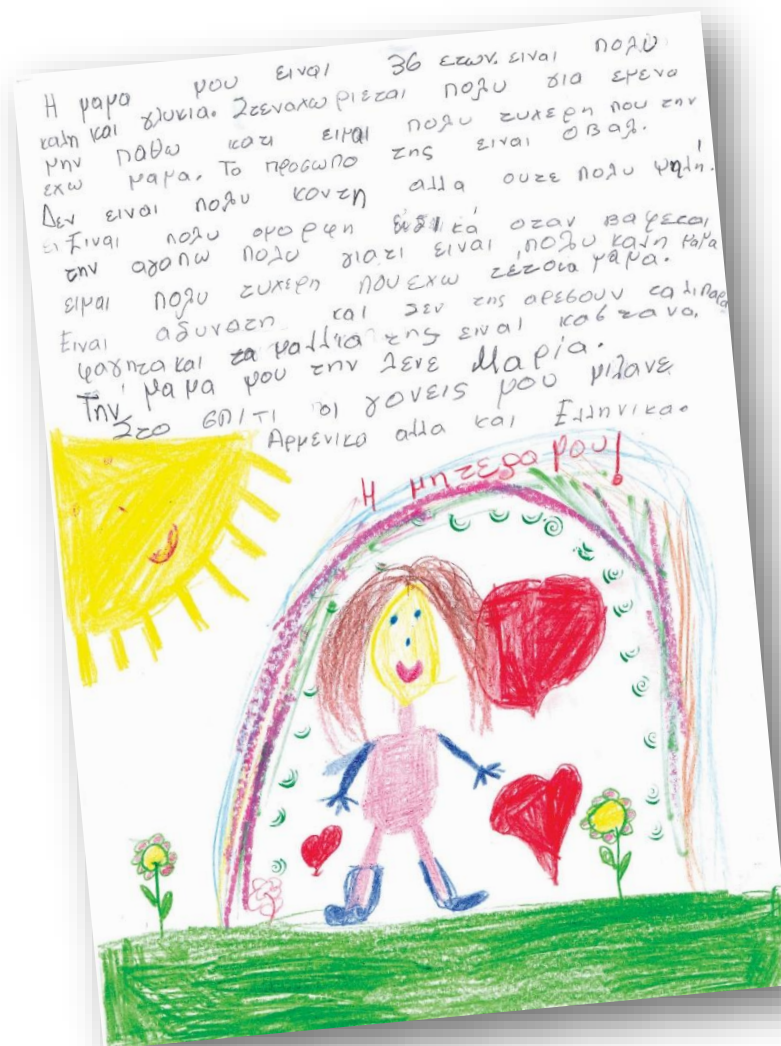 Η μαμα μου ειναι 36 ετων. ειναι πολυ
καλη και γλυκια. Στεναχωριεται πολυ για εμενα
μην παθω κατι ειμαι πολυ τυχερη που την
εχω μαμα. Το προσωπο της ειναι οβαλ.
Δεν ειναι πολυ κοντη αλλα ουτε πολυ ψηλή.
Ειναι πολυ ομορφη ειδικά οταν βαφεται
την αγαπω πολυ γιατι ειναι πολυ καλη μαμα
ειμαι πολυ τυχερη που εχω τέτοια μαμα.
Ειναι αδυνατη και δεν της αρεσουν τα λιπαρα
φαγητα και τα μαλλια της ειναι καστανα.
Την μαμα μου την λενε Μαρία.
Στο σπιτι οι γονεις μου μιλανε
Αρμενικα αλλα και Ελληνικα.
Η μητερα μου!